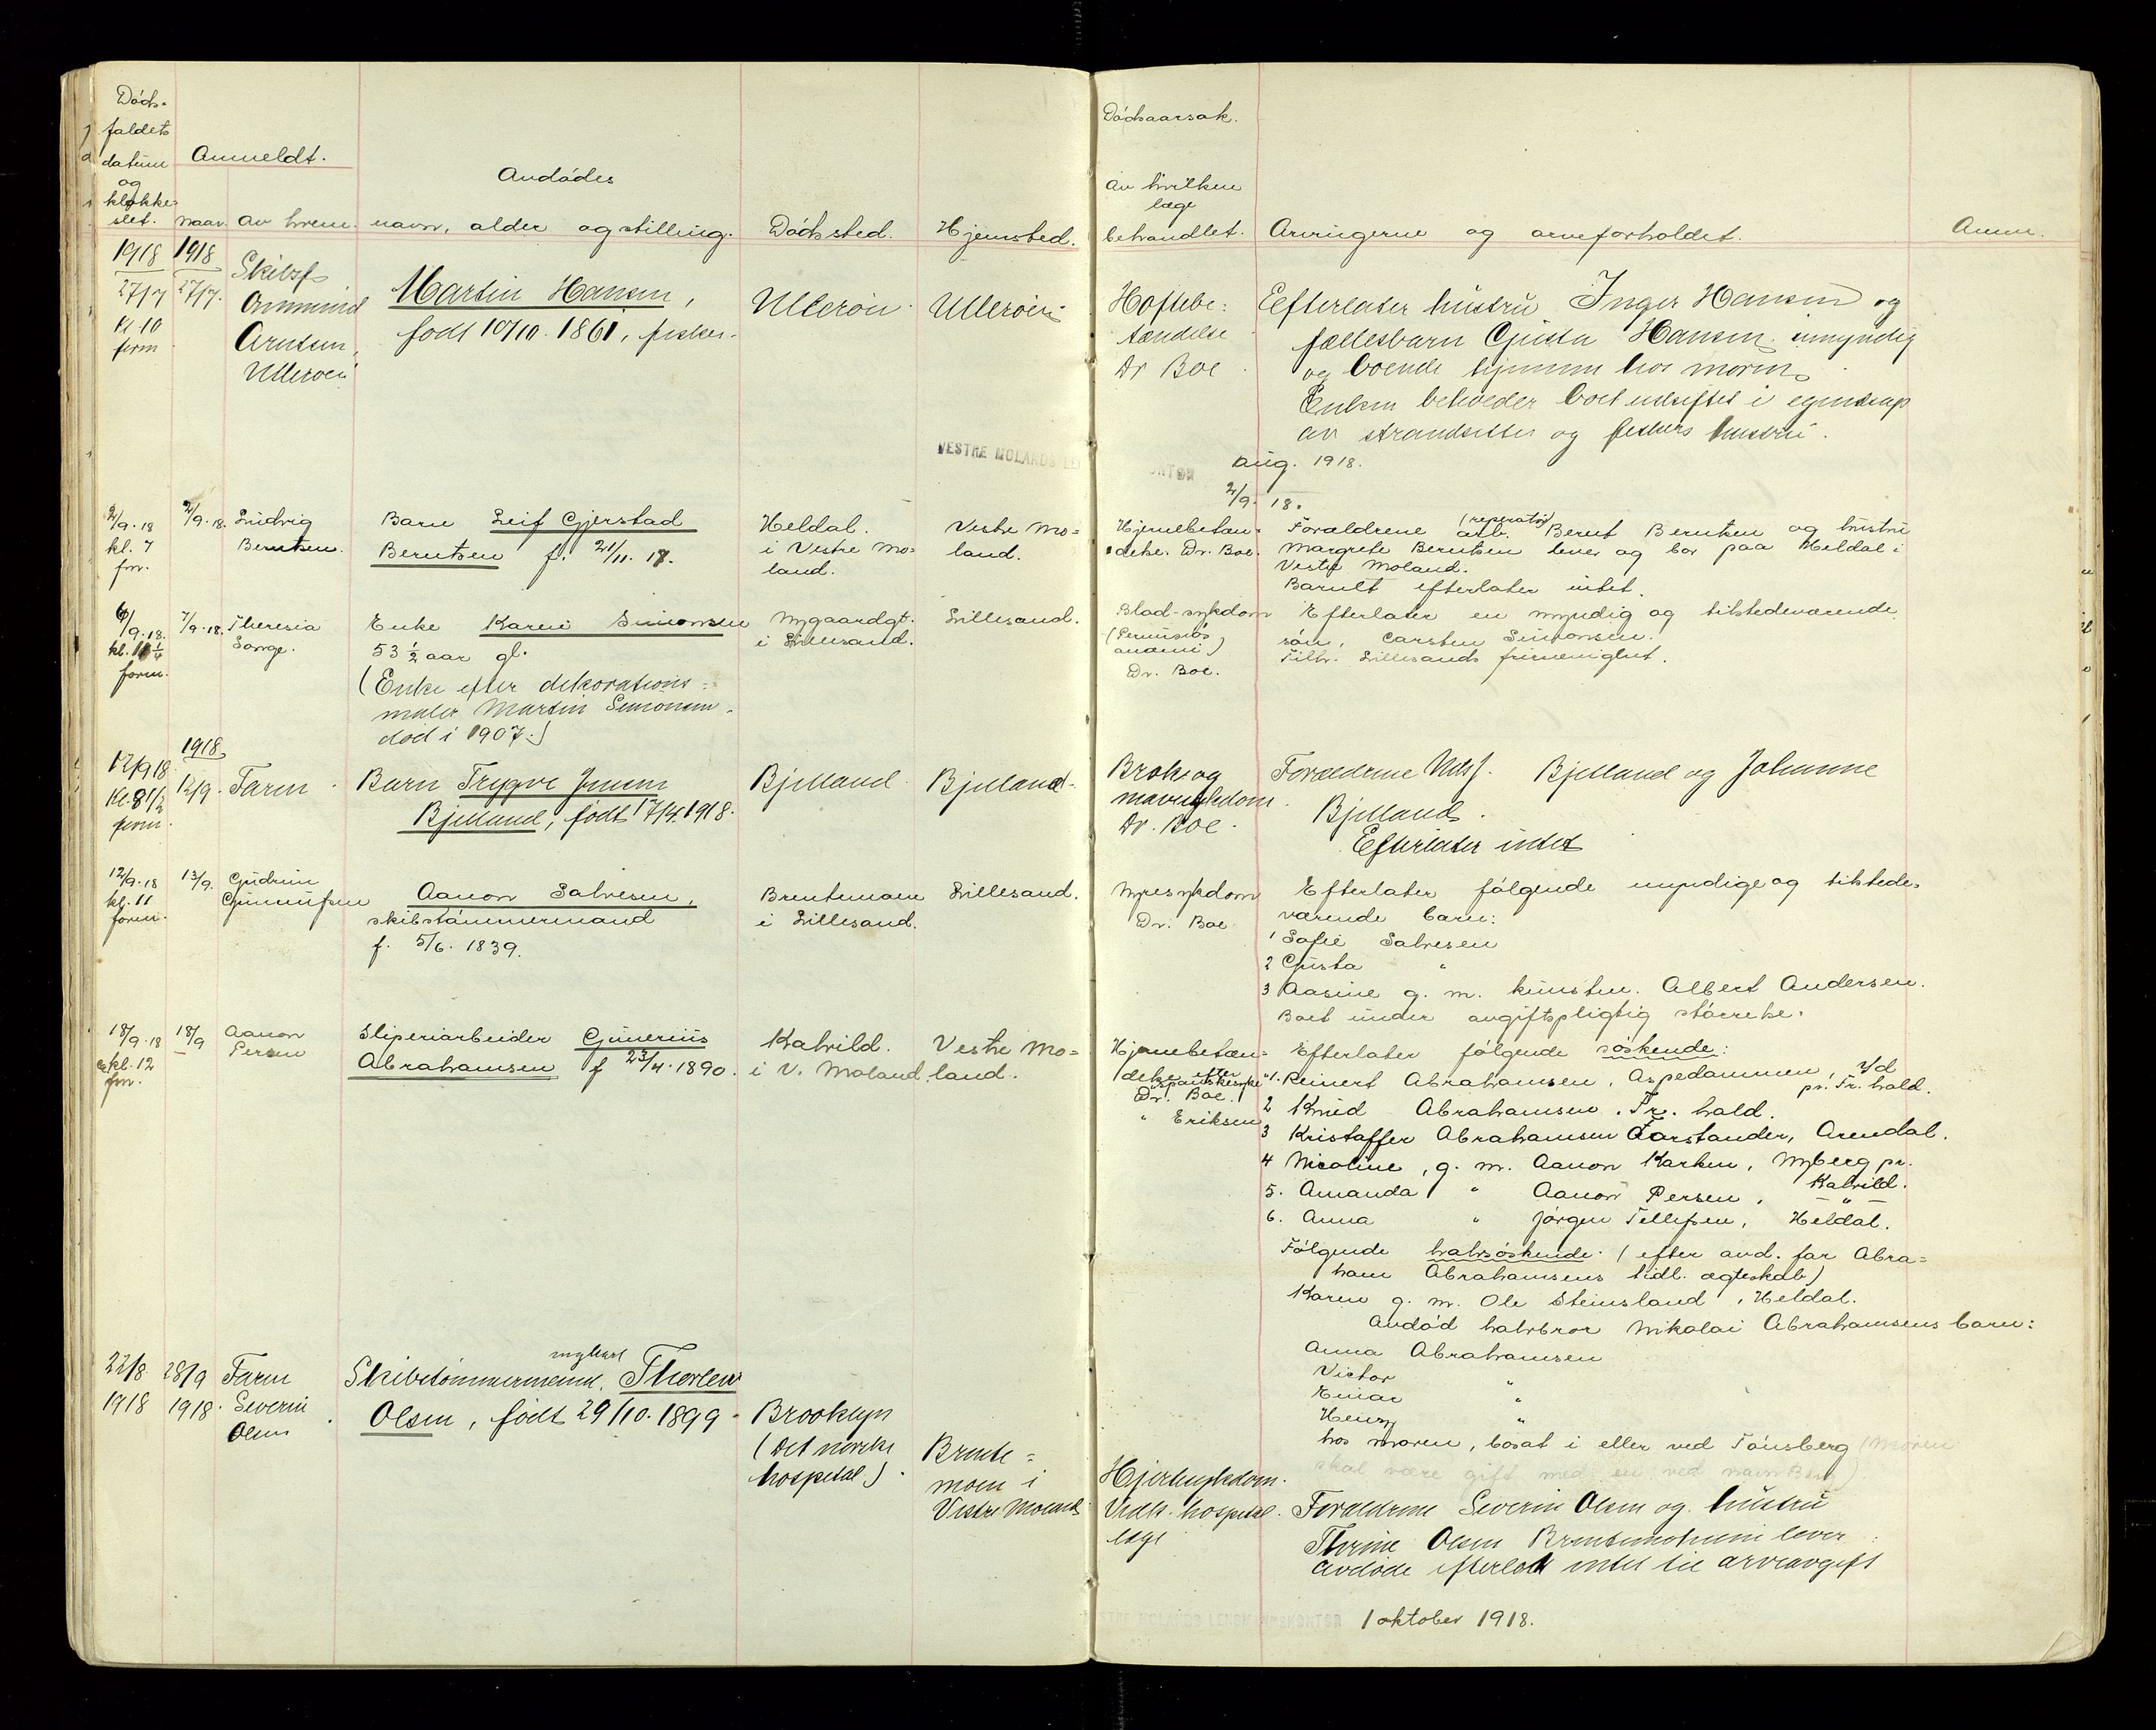 Døds-
faldets
datum
og
klokke-
slet.
Anmeldt.
naar. av hvem.
Avdødes
navn, alder og stilling.
Dødssted.
Hjemsted.
Dødsaarsak.
av hvilken
læge
behandlet.
Arvingerne og arveforholdet.
Anm.
1918
27/7
kl 10
form
1918
27/7.
Skibsf
Ommund
Arntsen,
Ulleröen
Martin Hansen,
født 10/10. 1861, fisker.
Ulleröen.
Ulleröen
Hoftebe-
tændelse
Dr Boe
Eefterlater hustru Inger Hansen og
fællesbarn Gusta Hansen, umyndig
og boende hjemme hos moren.
Enken beholder boet udskiftet i egenskap
av strandsitter og fiskers hustru.
VESTRE MOLANDS LE
NTOR
Aug. 1918.
2/9. 18.
2/9. 18
kl. 7
fm.
2/9. 18.
Ludvig
Berntsen.
Barn Leif Gjerstad
Berntsen f. 21/11. 17.
Heldal.
i Vestre Mo-
land.
Vestre Mo-
land.
Hjernebetæn-
delse. Dr. Boe.
(reperatør)
Forældrene arb. Bernt Berntsen og hustru
Margrete Berntsen lever og bor paa Heldal i
Vestre Moland.
Barnet efterlater intet.
6/9. 18.
kl. 11 1/4
form.
7/9. 18.
Theresia
Sange.
Enke Karen Simonsen
53 1/2 aar gl.
(Enke efter dekorations-
maler Martin Simonsen
död i 1907.)
Nygaardgt.
i Lillesand.
Lillesand.
Blod-sykdom
(Perniciøs
anæmi)
Dr. Boe.
Efterlater en myndig og tilstedeværende
søn, Carsten Simonsen.
Tilh. Lillesands frimenighet.
12/9 18
Kl. 8 1/2
form.
1918
12/9.
Faren
Barn Trygve Jensen
Bjelland, født 17/4. 1918.
Bjelland
Bjelland.
Brok og
mavesykdom.
Dr. Boe.
Forældrene Nils J. Bjelland og Johanne
Bjelland.
Efterlater intet
12/9. 18
kl. 11
form.
13/9.
Gudrun
Gunnufsen
Aanon Salvesen,
skibstømmermand
f. 5/6. 1839.
Brentemoen
i Lillesand.
Lillesand.
Nyresykdom
Dr. Boe.
Efterlater følgende myndige og tilstede-
værende barn:
1 Sofie Salvesen
2 Gusta "
3 Aasine g. m. kunstm. Albert Andersen.
Boet under avgiftspligtig størrelse.
18/9. 18
kl. 12
fm.
18/9
Aanon
Persen
Sliperiarbeider Gunerius
Abrahamsen f 23/4. 1890.
Kalvild.
i V. Moland.
Vestre Mo-
land.
Hjernebetæn-
delse efter
spanskesyke
Dr. Boe.
" Eriksen
Efterlater følgende søskende:
1. Reinert Abrahamsen, Aspedammen, I/d
pr. Fr. hald.
2 Knud Abrahamsen. Fr. hald.
3 Kristoffer Abrahamsen Torstander, Arendal.
4 Nicoline, g. m. Aanon Karlsen, Nyberg pr.
Kalvild.
5. Amanda " Aanon Persen, — " —
6. Anna " Jørgen Tellefsen, Heldal.
Følgende halvsøskende: (efter avd. far Abra-
ham Abrahamsens tidl. ægteskab)
Karen g. m. Ole Steinsland, Heldal.
Avdød halvbror Nikolai Abrahamsens barn:
Anna Abrahamsen
Victor "
Einar "
Henry "
hos moren, bosat i eller ved Tønsberg (Moren
skal være gift med en ved navn Berg)
22/8
1918
28/9
1918.
Faren
Severin
Olsen
ungkarl
Skibstømmermand. Thorleiv
Olsen, født 29/10. 1899.
Brooklyn
(Det norske
hospital).
Brente-
moen i
Vestre Moland
Hjertesykdom.
Vedk. hospital.
læge
Forældrene Severin Olsen og hustru
Thrine Olsen Brentemoen lever.
Avdøde efterlot intet til arveavgift
TRE MOLANDS LENSMANNSKONTOR
1 oktober 1918.